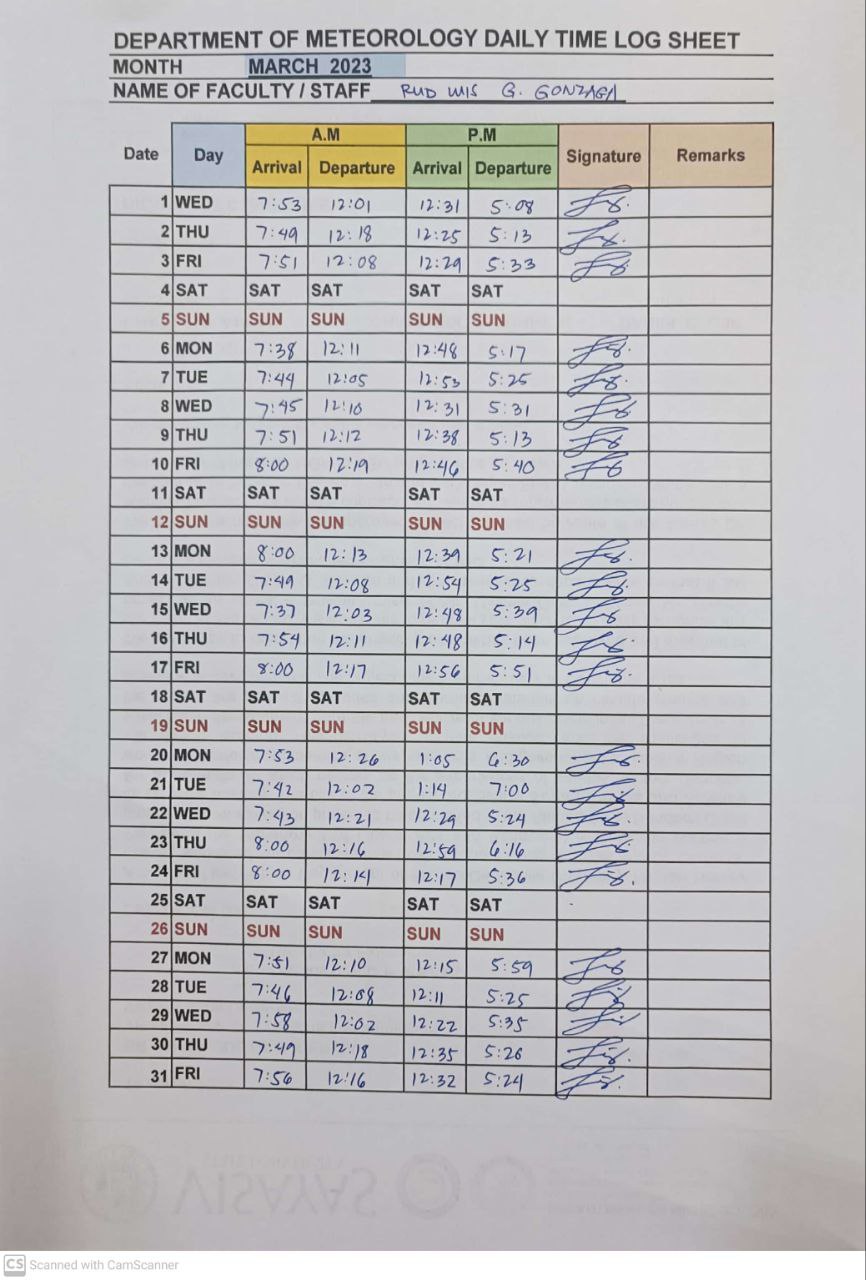 DEPARTMENT OF METEOROLOGY DAILY TIME LOG SHEET
MONTH MARCH 2023
NAME OF FACULTY / STAFF G. GONZAGA
A.M P.M
Date Day Arrival Departure Arrival Departure Signature Remarks
1 WED 7:53 12:01 12:31 5:08
2 THU 7:49 12:18 12:25 5:13
3 FRI 7:51 12:08 12:29 5:33
4 SAT SAT SAT SAT SAT
5 SUN SUN SUN SUN SUN
6 MON 7:38 12:11 12:48 5:17
7 TUE 7:44 12:05 12:53 5:25
8 WED 7:45 12:10 12:31 5:31
9 THU 7:51 12:12 12:38 5:13
10 FRI 8:00 12:19 12:46 5:40
11 SAT SAT SAT SAT SAT
12 SUN SUN SUN SUN SUN
13 MON 8:00 12:13 12:39 5:21
14 TUE 7:49 12:08 12:54 5:25
15 WED 7:37 12:03 12:48 5:39
16 THU 7:54 12:11 12:48 5:14
17 FRI 8:00 12:17 12:56 5:51
18 SAT SAT SAT SAT SAT
19 SUN SUN SUN SUN SUN
20 MON 7:53 12:26 1:05 6:30
21 TUE 7:42 12:02 1:14 7:00
22 WED 7:43 12:21 12:29 5:24
23 THU 8:00 12:16 12:59 6:16
24 FRI 8:00 12:14 12:17 5:36
25 SAT SAT SAT SAT SAT
26 SUN SUN SUN SUN SUN
27 MON 7:51 12:10 12:15 5:59
28 TUE 7:46 12:08 12:11 5:25
29 WED 7:58 12:02 12:22 5:35
30 THU 7:49 12:18 12:35 5:26
31 FRI 7:56 12:16 12:32 5:24
CS Scanned with CamScanner